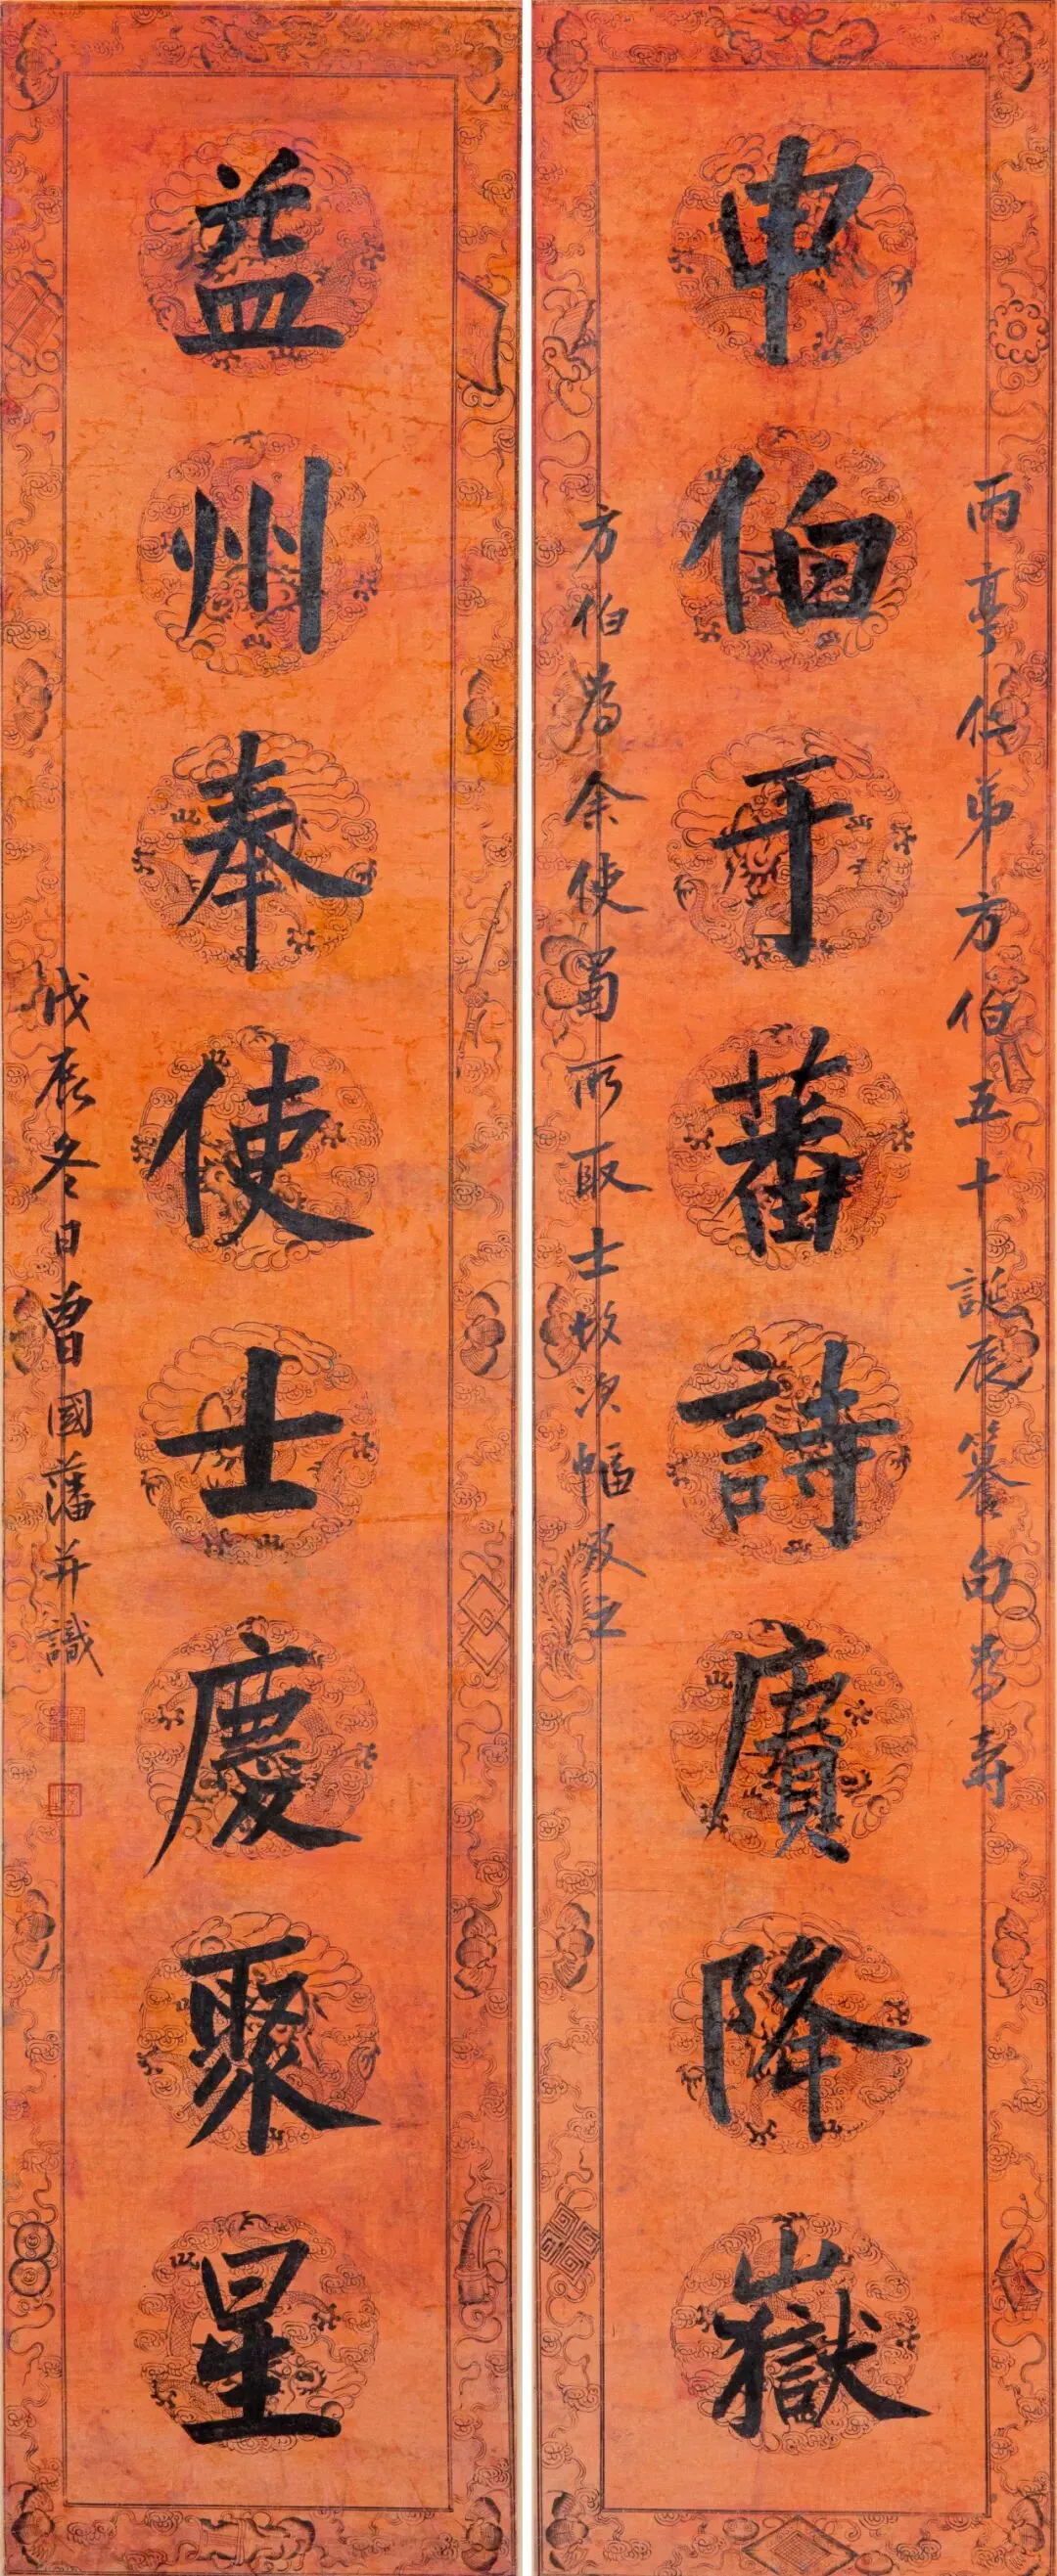 丙亭仁弟方伯五十誕辰篹句為壽
申伯于蕃詩賡降嶽
方伯為余使蜀所取士故次幅及之
益州奉使士慶聚星
戊辰冬日曾國藩并識